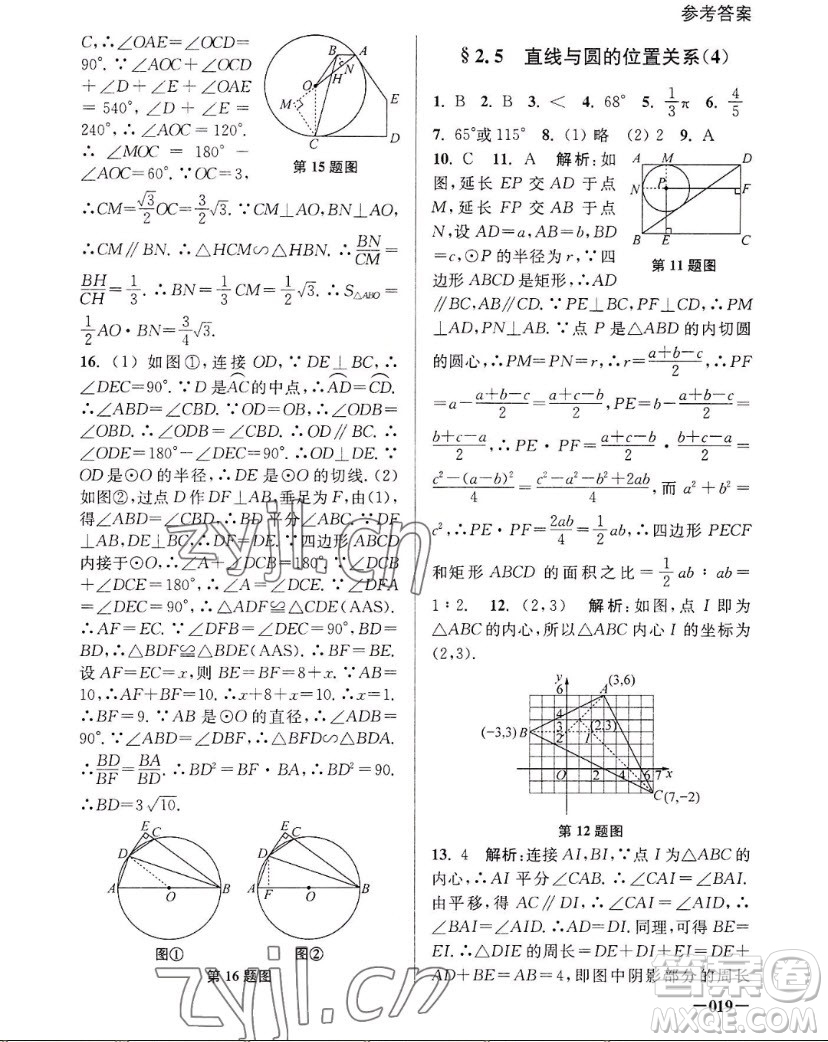 参考答案
C,∴∠OAE=∠OCD=
90°. ∵∠AOC+∠OCD
+∠D+∠E+∠OAE
=540°,∠D+∠E=
240°,∴∠AOC=120°.
∴∠MOC=180°-
∠AOC=60°. ∵OC=3,
B A
N
H
O
M
E
C
D
第15题图
∴CM=√3/2 OC=3/2 √3. ∵CM⊥AO,BN⊥AO,
∴CM∥BN. ∴△HCM∽△HBN. ∴BN/CM=
BH/CH=1/3. ∴BN=1/3 CM=1/2 √3. ∴S△ABO=
1/2 AO·BN=3/4 √3.
16. (1) 如图①,连接OD,∵DE⊥BC,∴
∠DEC=90°. ∵D是AC的中点,∴AD=CD.
∴∠ABD=∠CBD. ∵OD=OB,∴∠ODB=
∠OBD. ∴∠ODB=∠CBD. ∴OD∥BC. ∴
∠ODE=180°-∠DEC=180°-90°=90°. ∵
OD是⊙O的半径,∴DE是⊙O的切线. (2)
如图②,过点D作DF⊥AB,垂足为F,由(1),
得∠ABD=∠CBD,∴BD平分∠ABC. ∵DF
⊥AB,DE⊥BC,∴DF=DE. ∵四边形ABCD
内接于⊙O,∴∠A+∠DCB=180°. ∵∠DCB+
∠DCE=180°,∴∠A=∠DCE. ∵∠DFA
=∠DEC=90°,∴△ADF≌△CDE(AAS).
∴AF=EC. ∵∠DFB=∠DEC=90°,BD=
BD,∴△BDF≌△BDE(AAS). ∴BF=BE.
设AF=EC=x,则BE=BF=8+x. ∵AB=
10,∴AF+BF=10. ∴x+8+x=10. ∴x=1.
∴BF=9. ∵AB是⊙O的直径,∴∠ADB=
90°. ∵∠ABD=∠DBF,∴△BFD∽△BDA.
∴BD/BF=BA/BD. ∴BD²=BF·BA,∴BD²=90.
∴BD=3√10.
E C
D
A O B
图①
E C
D
A F O B
图②
第16题图
§2.5 直线与圆的位置关系(4)
1. B 2. B 3. < 4. 68° 5. 1/3 π 6. 4/5
7. 65°或115° 8. (1) 略 (2) 2 9. A
10. C 11. A 解析:如
图,延长EP交AD于点
M,延长FP交AB于点
N,设AD=a,AB=b,BD
=c,⊙P的半径为r,∵四
边形ABCD是矩形,∴AD
A M D
N P F
B E C
第11题图
∥BC,AB∥CD. ∵PE⊥BC,PF⊥CD,∴PM
⊥AD,PN⊥AB. ∵点P是△ABD的内切圆
的圆心,∴PM=PN=r,∴r=(a+b-c)/2,∴PF
=a-(a+b-c)/2=(a+c-b)/2,PE=b-(a+b-c)/2=
(b+c-a)/2,∴PE·PF=(a+c-b)/2·(b+c-a)/2=
(c²-(a-b)²)/4=(c²-a²-b²+2ab)/4,而a²+b²=
c²,∴PE·PF=2ab/4=1/2 ab,∴四边形PECF
和矩形ABCD的面积之比=1/2 ab∶ab=
1∶2. 12. (2,3) 解析:如图,点I即为
△ABC的内心,所以△ABC内心I的坐标为
(2,3).
y
6
A (3,6)
4
(-3,3) B
3
2
I (2,3)
O 2 4 6 7 x
C (7,-2)
第12题图
13. 4 解析:连接AI,BI,∵点I为△ABC的
内心,∴AI平分∠CAB. ∴∠CAI=∠BAI.
由平移,得AC∥DI,∴∠CAI=∠AID,∴
∠BAI=∠AID. ∴AD=DI. 同理,可得BE=
EI. ∴△DIE的周长=DE+DI+EI=DE+
AD+BE=AB=4,即图中阴影部分的周长
—019—
zyjl.cn
zyjl.cn
答案圈
MXQE.COM